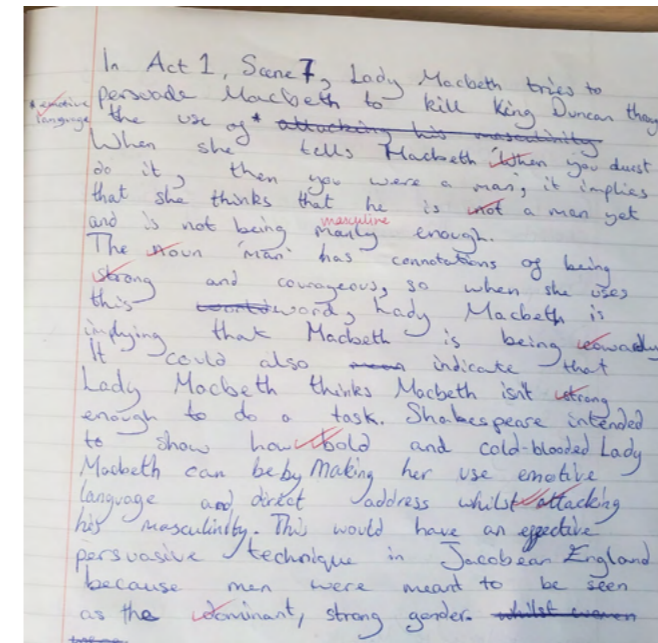 In Act 1, Scene 7, Lady Macbeth tries to
persuade Macbeth to kill King Duncan though
* emotive language
the use of * attacking his masculinity
When she tells Macbeth 'When you durst
do it, then you were a man; it implies
that she thinks that he is not a man yet
and is not being manly enough.
masculine
The noun 'man' has connotations of being
strong and courageous, so when she uses
this word, Lady Macbeth is
implying that Macbeth is being cowardly
It could also indicate that
Lady Macbeth thinks Macbeth isn't strong
enough to do a task. Shakespeare intended
to show how bold and cold-blooded Lady
Macbeth can be by making her use emotive
language and direct address whilst attacking
his masculinity. This would have an effective
persuasive technique in Jacobean England
because men were meant to be seen
as the dominant, strong gender. whilst women